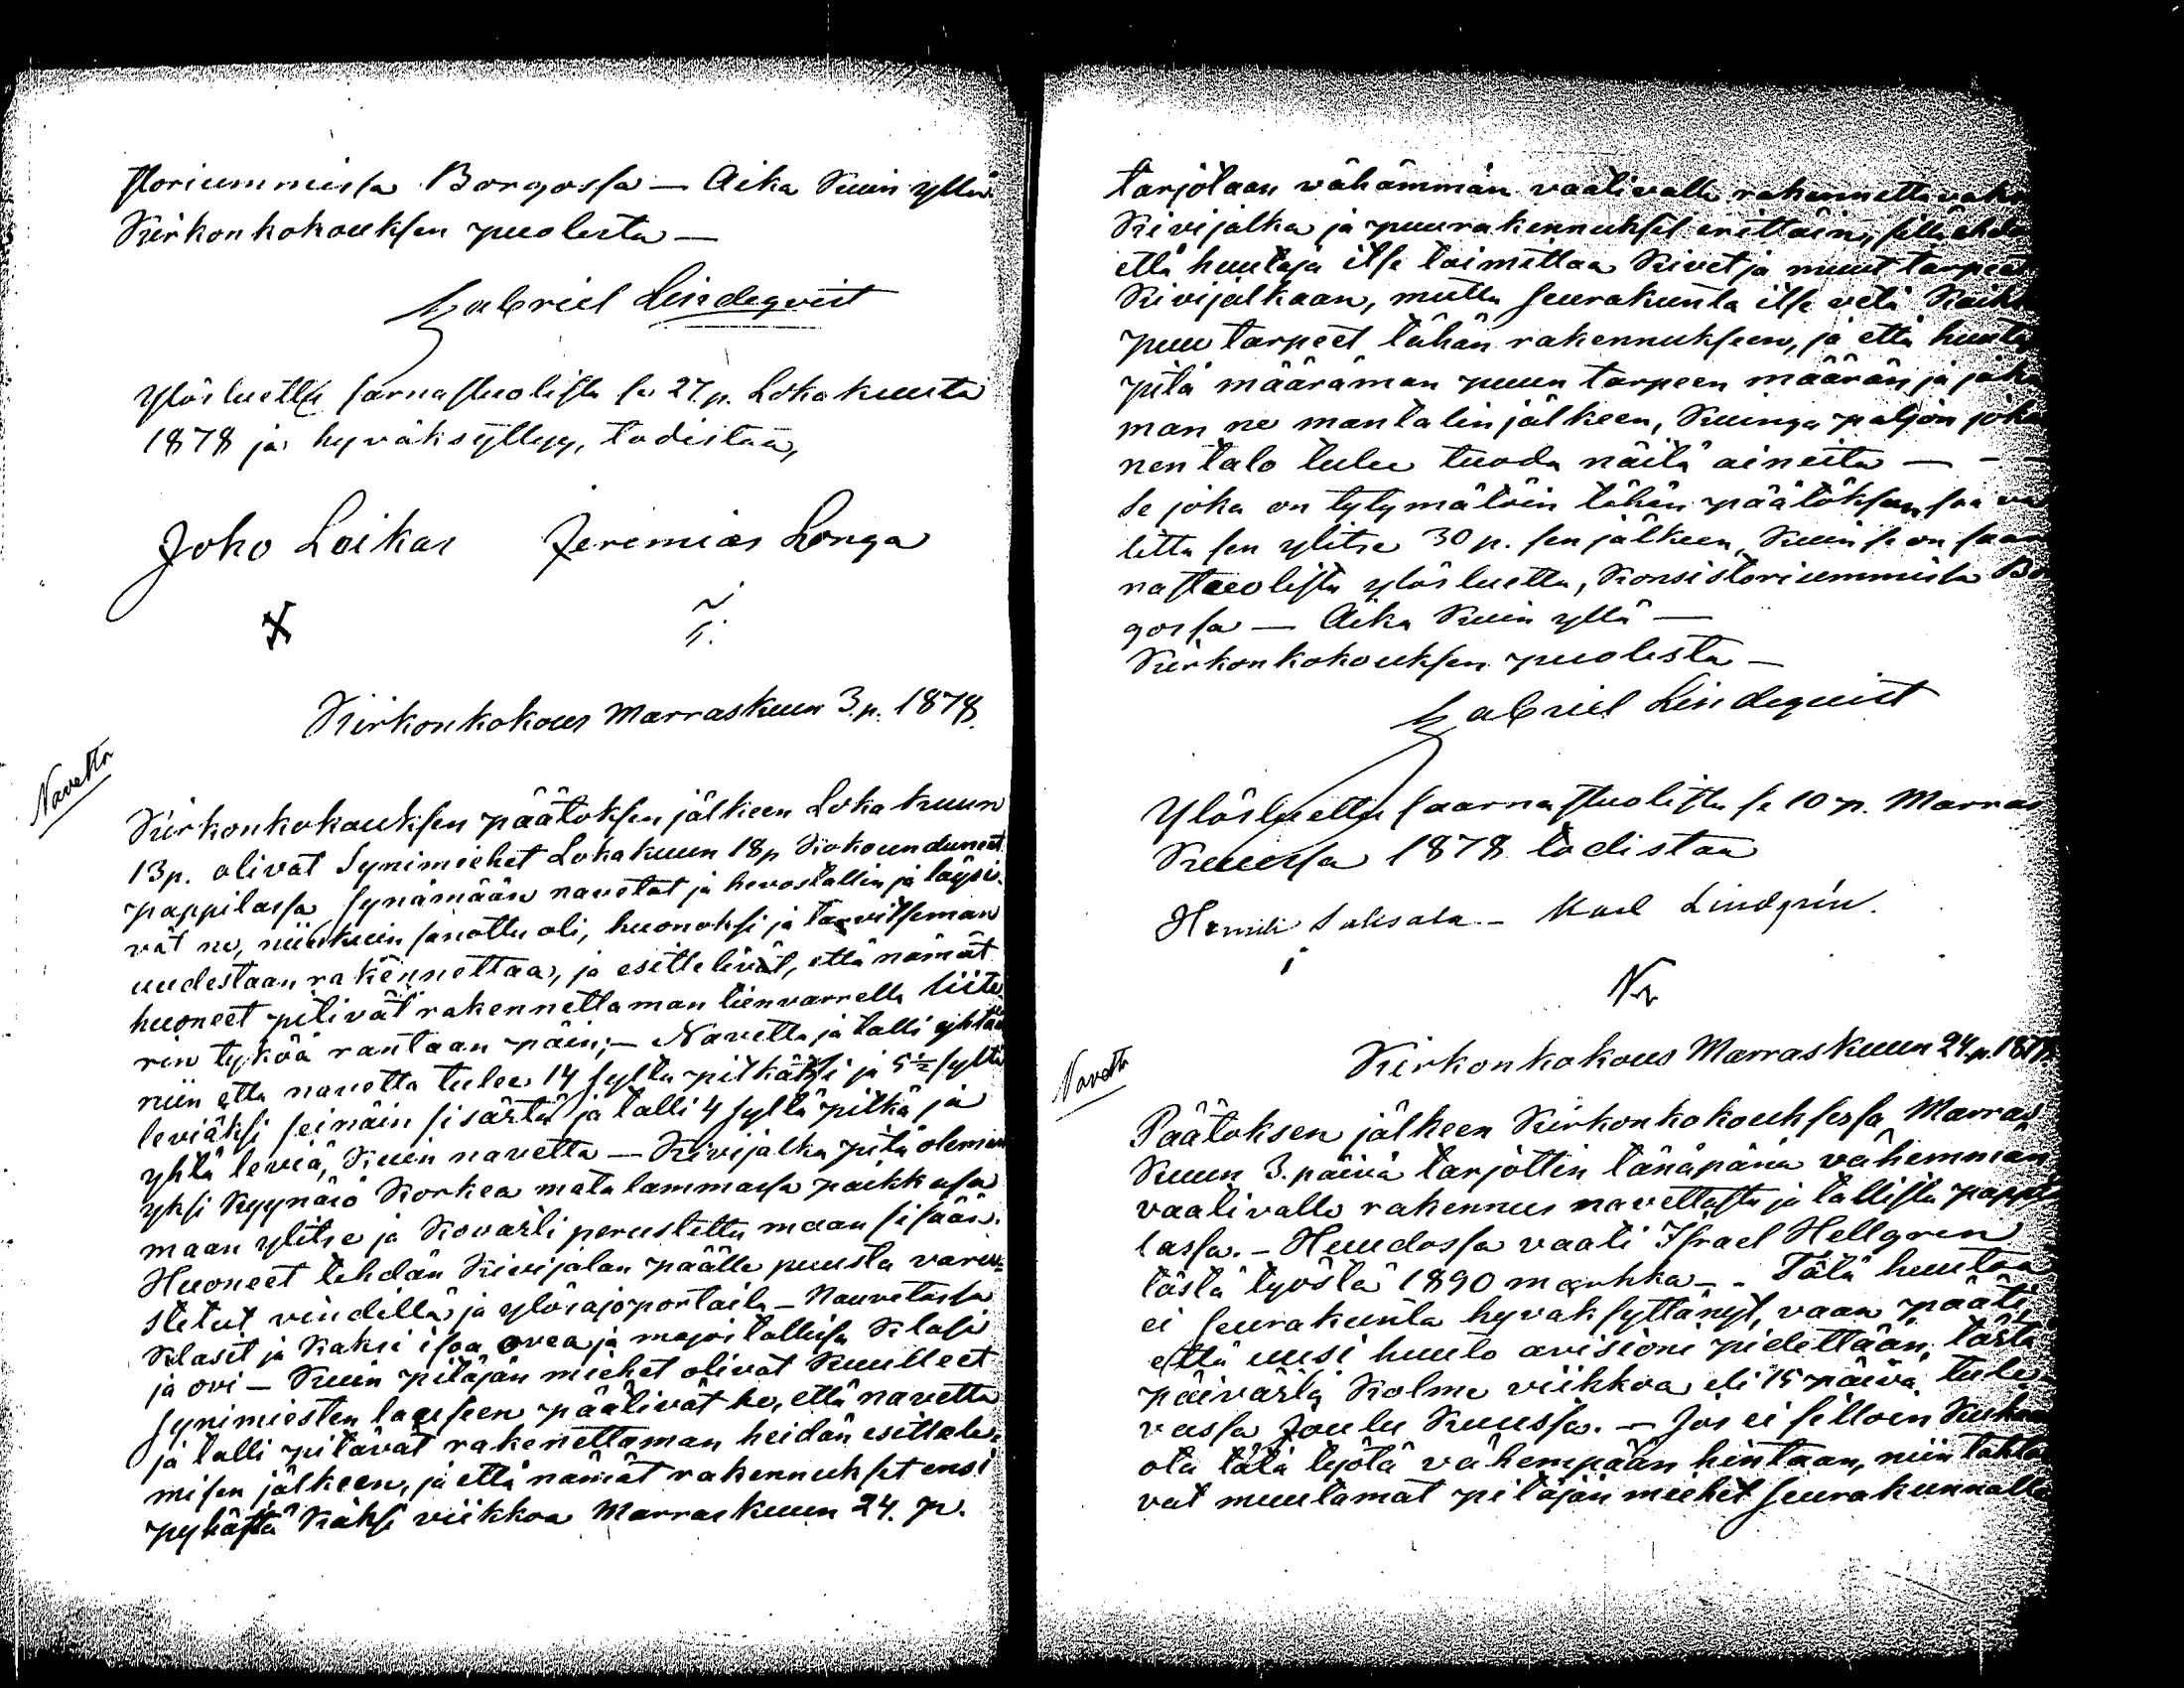 storiummissa Borgossa — Aika Kuin yllä
Kirkonkokouksen puolesta —
Gabriel Lindeqvist
Ylösluettu sarnastuolista se 27 p. Lokakuuta
1878 ja hyväksyttyy, todistaa,
Joho Loikas Jeremias Longa
Kirkonkokous Marraskuun 3. p. 1878.
Navetta
Kirkonkokouksen päätoksen jälkeen Lokakuun
13 p. olivat Synimiehet Lokakuun 18 p Kokounduneet
pappilassa synämään navetat ja hevostallin ja löysi-
vät ne, niinkuin sanottu oli, huonoksi ja tarvitseman
uudestaan rakennettaa, ja esittelivät, että nämät
huoneet pitivät rakennettaman tienvarrella liite
rin tyköä rantaan päin; — Navetta ja talli yhtää
niin että navetta tulee 14 syltä pitkäksi ja 5½ syltä
leviäksi seinäin sisästä ja talli 4 syltä pitkä ja
yhtä leviä, Kuin navetta — Kivijalka pitä oleman
yksi Kyynärö Korkea matalammassa paikkassa
maan ylitse ja Kovasti perustettu maan sisään.
Huoneet tehdän Kivijalan päälle puusta varu-
stetut vindillä ja ylösajoportaila — Nauvetassa
Klasit ja Kaksi isoa ovea ja myös tallissa Klasi
ja ovi — Kuin pitäjän miehet olivat Kuulleet
synimiesten lauseen päätivät he, että navetta
ja talli pitävät rakenettaman heidän esittele-
misen jälkeen, ja että nämät rakennukset ensi
pyhästä Kaksi viikkoa Marraskuun 24. p.
tarjotaan vähämmän vaativalle rakennettavaksi
Kivijalka ja puurakennukset erittäin, sillä ehdo
että huutaja itse toimittaa Kivet ja muut tarpeet
Kivijalkaan, mutta seurakunta itse vetä Kaikk
puu tarpeet tähän rakennukseen, ja että huuta
pitä määräman puun tarpeen määrän ja jaka
man ne mantalin jälkeen, Kuinga paljon joka
nen talo tulee tuoda näitä aineita — — —
Se joka on tytymätöin tähän päätöksen saa va
litta sen ylitse 30 p. sen jälkeen, Kuin se on saar
nastuolista ylösluettu, Konsistoriummissa Bo
gossa — Aika Kuin yllä —
Kirkonkokouksen puolesta —
Gabriel Lindeqvist
Ylösluettu saarnastuolista se 10 p. Marras
Kuussa 1878 todistaa
Saksala — Karl Lindgrén.
Kirkonkokous Marraskuun 24. p. 1878.
Navetta
Päätoksen jälkeen Kirkonkokouksessa Marras
Kuun 3. päivä tarjottin tänäpänä vähemmän
vaativalle rakennus navettasta ja tallista pappi
lassa. — Huudossa vaati Israel Hellgren
tästä työstä 1890 markka — Tätä huutoa
ei seurakunta hyvaksyttänyt, vaan pääti,
että uusi huuto avisioni pidettään, tästä
päivästä Kolme viikkoa eli 15 päivä tule-
vassa Joulu Kuussa. — Jos ei silloin Kukan
ota tätä työtä vähempään hintaan, niin tahto
vat muutamat pitäjän miehet seurakunnalle